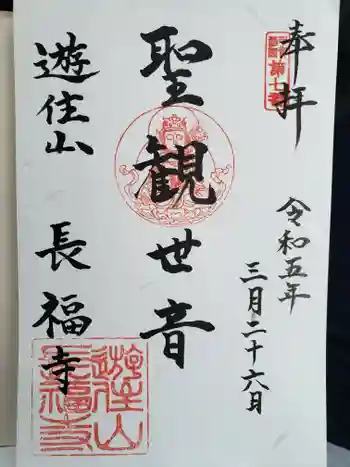 奉拝
第七番
令和五年
三月二十六日
聖観世音
遊住山
長福寺
遊住山
長福寺